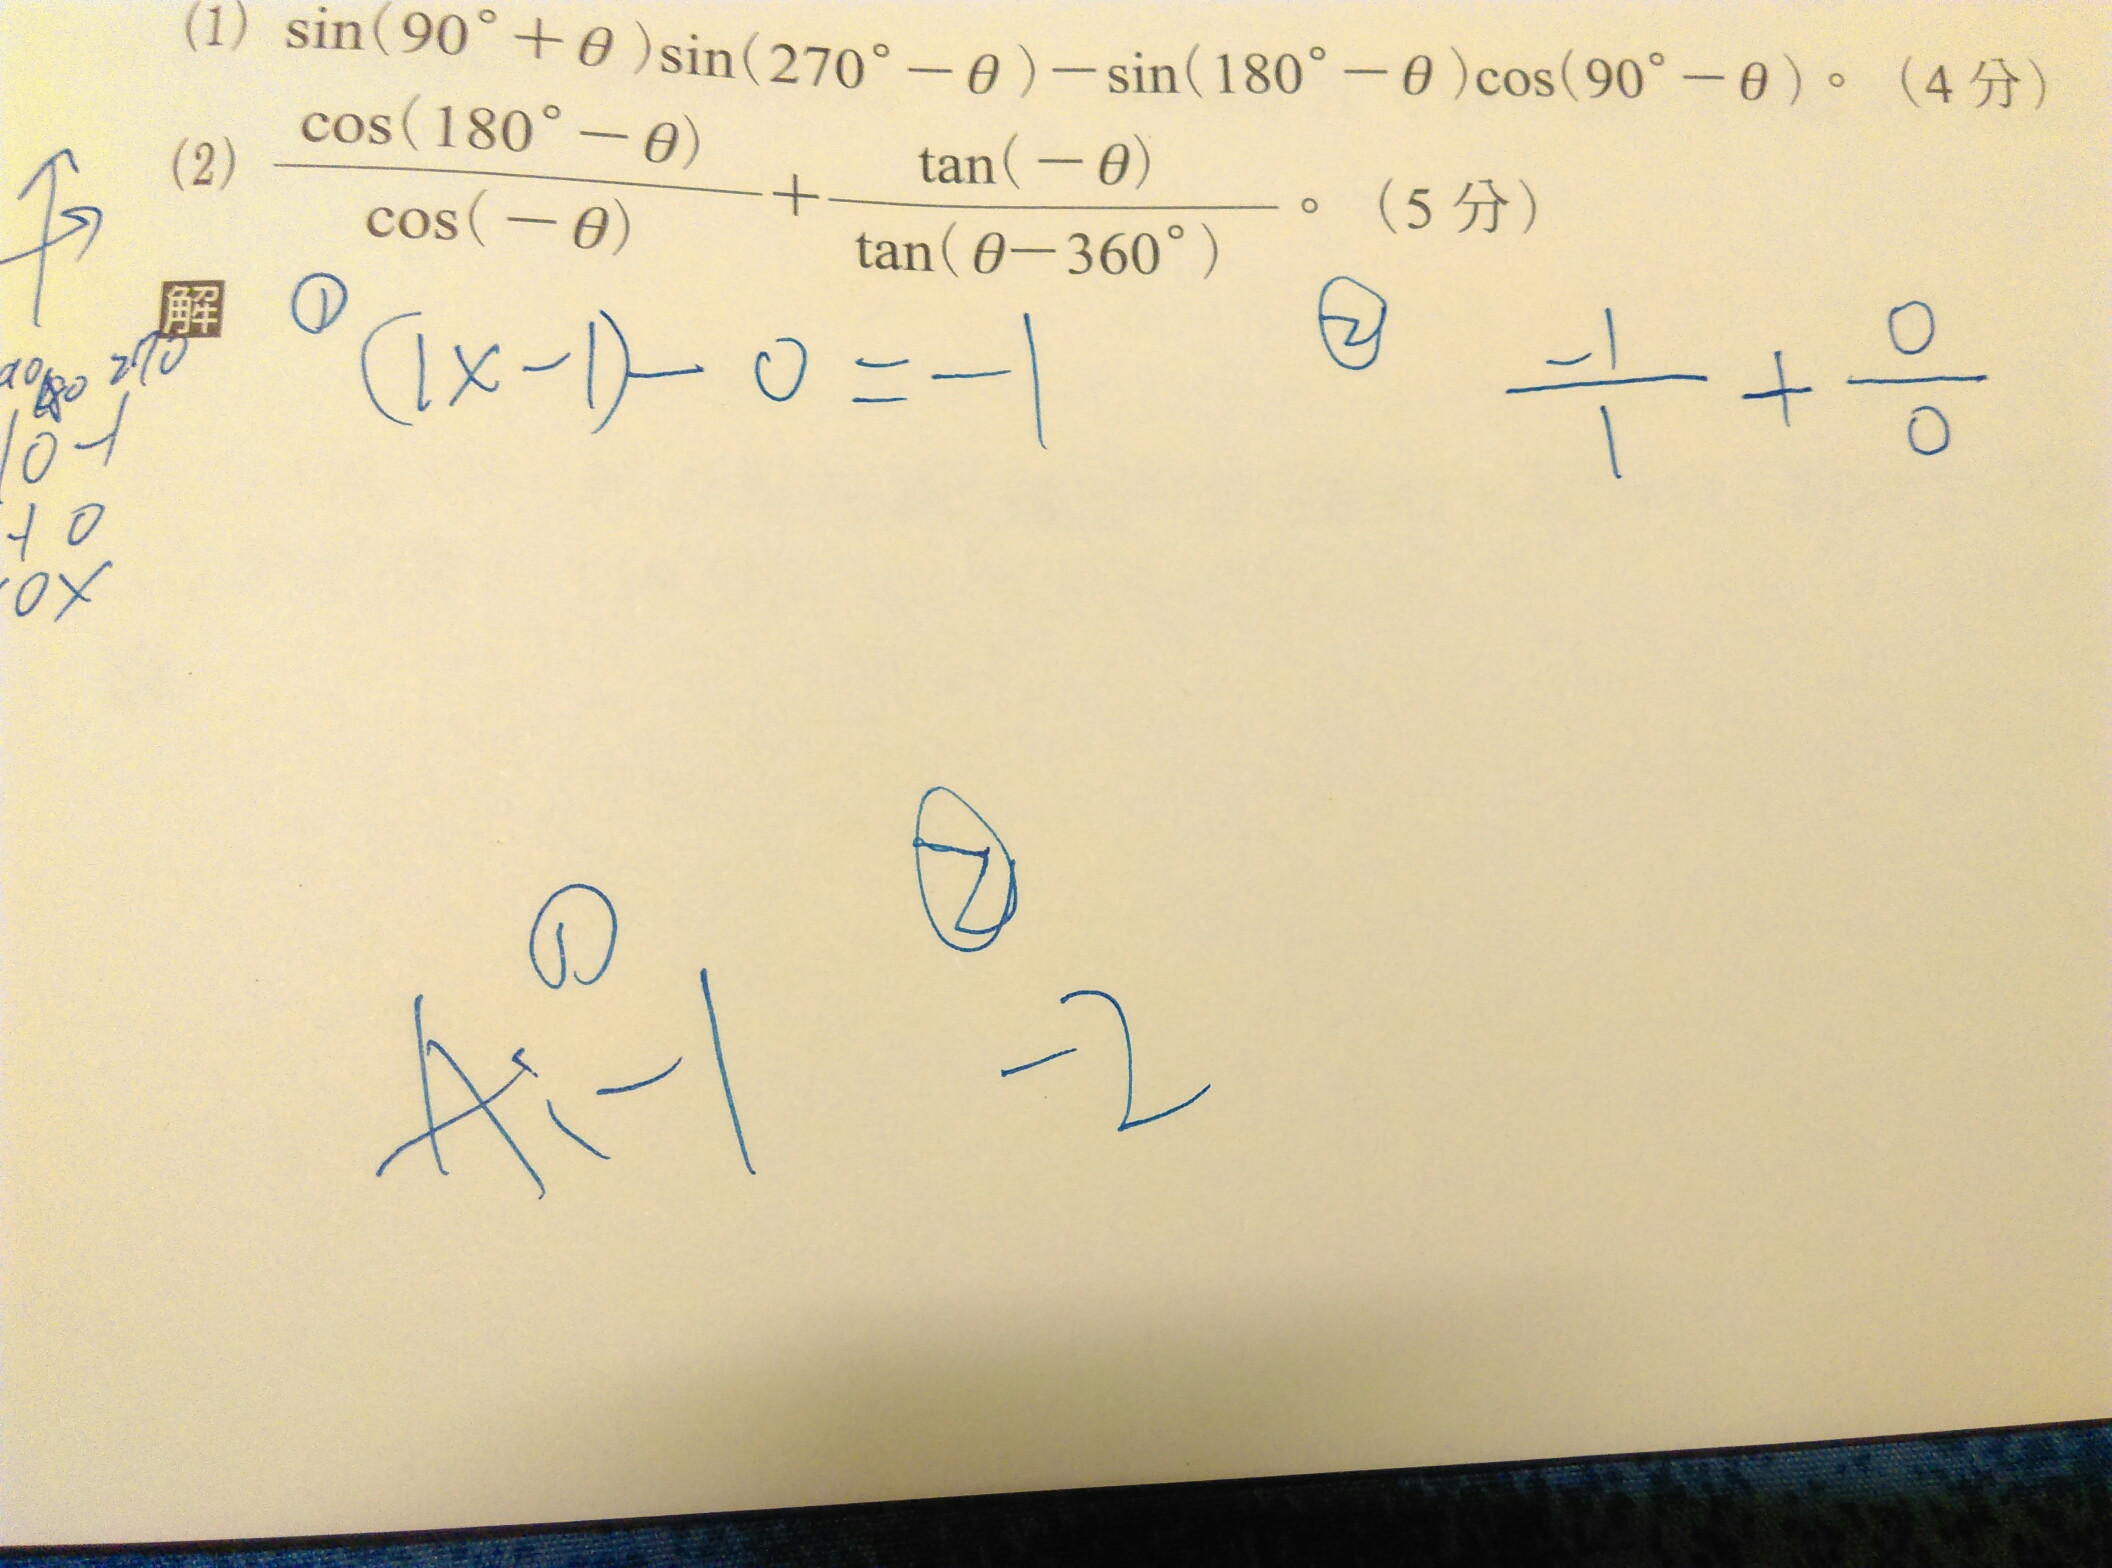 (1) sin(90°+θ)sin(270°-θ)-sin(180°-θ)cos(90°-θ)。(4分)
(2) cos(180°-θ)/cos(-θ) + tan(-θ)/tan(θ-360°)。(5分)
解
① (1x-1)-0=-1
② -1/1 + 0/0
270
10-1
-10
0x
① ②
A:-1 -2